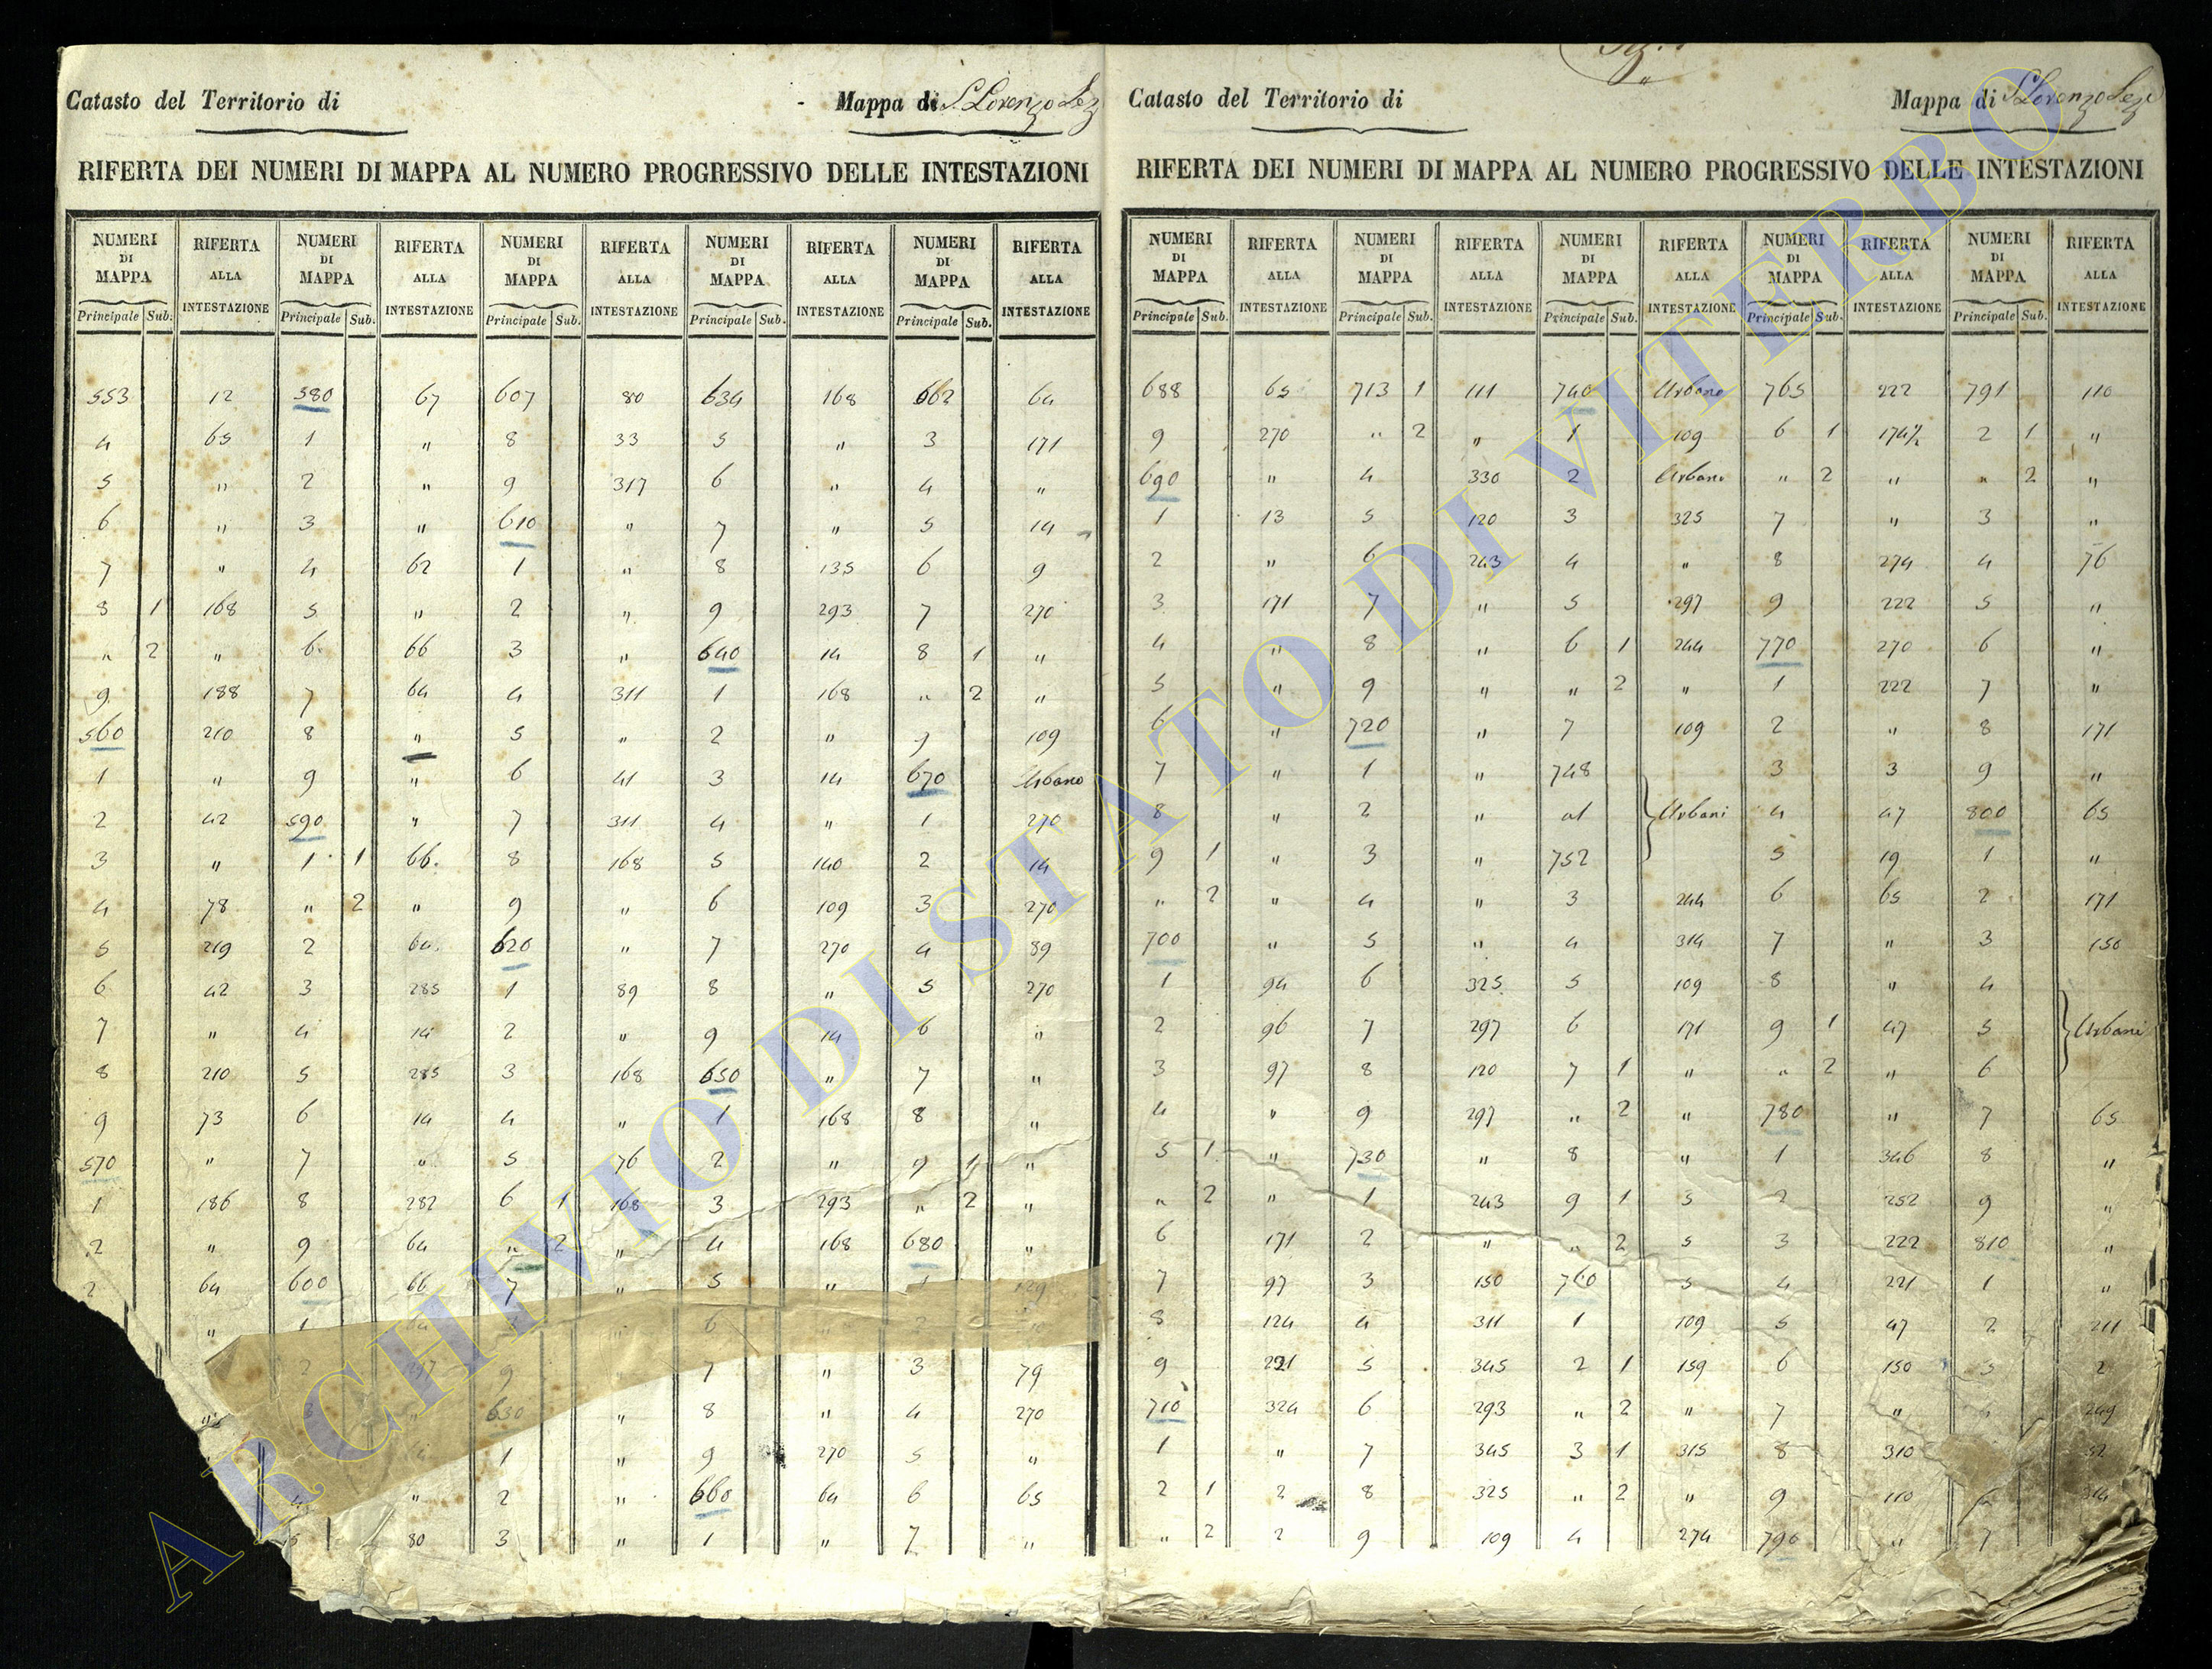 Catasto del Territorio di Mappa di S. Lorenzo Sez
RIFERTA DEI NUMERI DI MAPPA AL NUMERO PROGRESSIVO DELLE INTESTAZIONI
NUMERI DI MAPPA RIFERTA ALLA INTESTAZIONE NUMERI DI MAPPA RIFERTA ALLA INTESTAZIONE NUMERI DI MAPPA RIFERTA ALLA INTESTAZIONE NUMERI DI MAPPA RIFERTA ALLA INTESTAZIONE NUMERI DI MAPPA RIFERTA ALLA INTESTAZIONE
Principale Sub. Principale Sub. Principale Sub. Principale Sub. Principale Sub.
553 12 580 67 607 80 634 168 662 64
4 65 1 " 8 33 5 " 3 171
5 " 2 " 9 317 6 " 4 "
6 " 3 " 610 " 7 " 5 14
7 " 4 62 1 " 8 135 6 9
8 1 168 5 " 2 " 9 293 7 270
" 2 " 6 66 3 " 640 14 8 1 "
9 188 7 64 4 311 1 168 " 2 "
560 210 8 " 5 " 2 " 9 109
1 " 9 " 6 41 3 14 670 Urbano
2 42 590 " 7 311 4 " 1 270
3 " 1 1 66 8 168 5 140 2 14
4 78 " 2 " 9 " 6 109 3 270
5 219 2 64 620 " 7 270 4 89
6 42 3 285 1 89 8 " 5 270
7 " 4 14 2 " 9 14 6 "
8 210 5 285 3 168 650 " 7 "
9 73 6 14 4 " 1 168 8 "
570 " 7 " 5 76 2 " 9 1 "
1 186 8 282 6 1 168 3 293 " 2 "
2 " 9 64 " 2 " 4 168 680 "
64 600 66 7 " 5 " 1 129
" 1 64 " 6 " 2
2 297 9 7 " 3 79
3 " 630 " 8 " 4 270
1 " 9 270 5 "
" 2 " 660 64 6 65
80 3 " 1 " 7 "
Catasto del Territorio di Mappa di S. Lorenzo Sez
RIFERTA DEI NUMERI DI MAPPA AL NUMERO PROGRESSIVO DELLE INTESTAZIONI
NUMERI DI MAPPA RIFERTA ALLA INTESTAZIONE NUMERI DI MAPPA RIFERTA ALLA INTESTAZIONE NUMERI DI MAPPA RIFERTA ALLA INTESTAZIONE NUMERI DI MAPPA RIFERTA ALLA INTESTAZIONE NUMERI DI MAPPA RIFERTA ALLA INTESTAZIONE
Principale Sub. Principale Sub. Principale Sub. Principale Sub. Principale Sub.
688 65 713 1 111 740 Urbano 765 222 791 110
9 270 " 2 " 1 109 6 1 174½ 2 1 "
690 " 4 330 2 Urbano " 2 " " 2 "
1 13 5 120 3 325 7 " 3 "
2 " 6 243 4 " 8 274 4 76
3 171 7 " 5 297 9 222 5 "
4 " 8 " 6 1 244 770 270 6 "
5 " 9 " " 2 " 1 222 7 "
6 " 720 " 7 109 2 " 8 171
7 " 1 " 748 3 3 9 "
8 " 2 " al Urbani 4 47 800 65
9 1 " 3 " 752 5 19 1 "
" 2 " 4 " 3 244 6 65 2 171
700 " 5 " 4 314 7 " 3 150
1 94 6 325 5 109 8 " 4
2 96 7 297 6 171 9 1 47 5 Urbani
3 97 8 120 7 1 " " 2 " 6
4 " 9 297 " 2 " 780 " 7 65
5 1 " 730 " 8 " 1 346 8 "
" 2 " 1 243 9 1 5 2 252 9 "
6 171 2 " " 2 5 3 222 810 "
7 97 3 150 760 5 4 221 1 "
8 124 4 311 1 109 5 47 2 211
9 221 5 345 2 1 159 6 150 3 2
710 324 6 293 " 2 " 7 " 4 249
1 " 7 345 3 1 315 8 310 52
2 1 2 8 325 " 2 " 9 110 314
" 2 2 9 109 4 274 790 " 7
ARCHIVIO DI STATO DI VITERBO